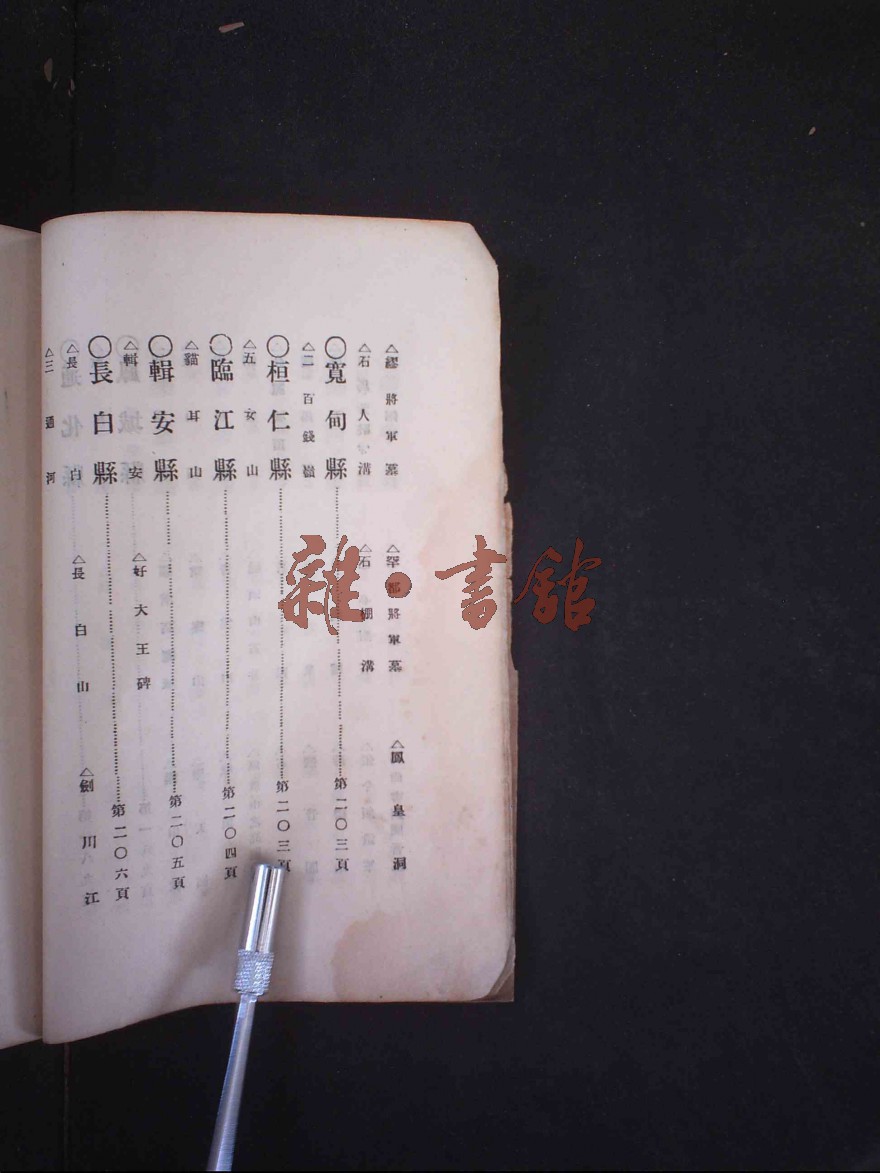 △繆將軍墓 △罕都將軍墓 △鳳皇洞
△石人溝 △石棚溝
○寬甸縣…………第二〇三頁
△二百錢嶺
○桓仁縣…………第二〇三頁
△五女山
○臨江縣…………第二〇四頁
△貓耳山
○輯安縣…………第二〇五頁
△輯安 △好大王碑
○長白縣…………第二〇六頁
△長白 △長白山 △劍川江
△三通河
雜·書館